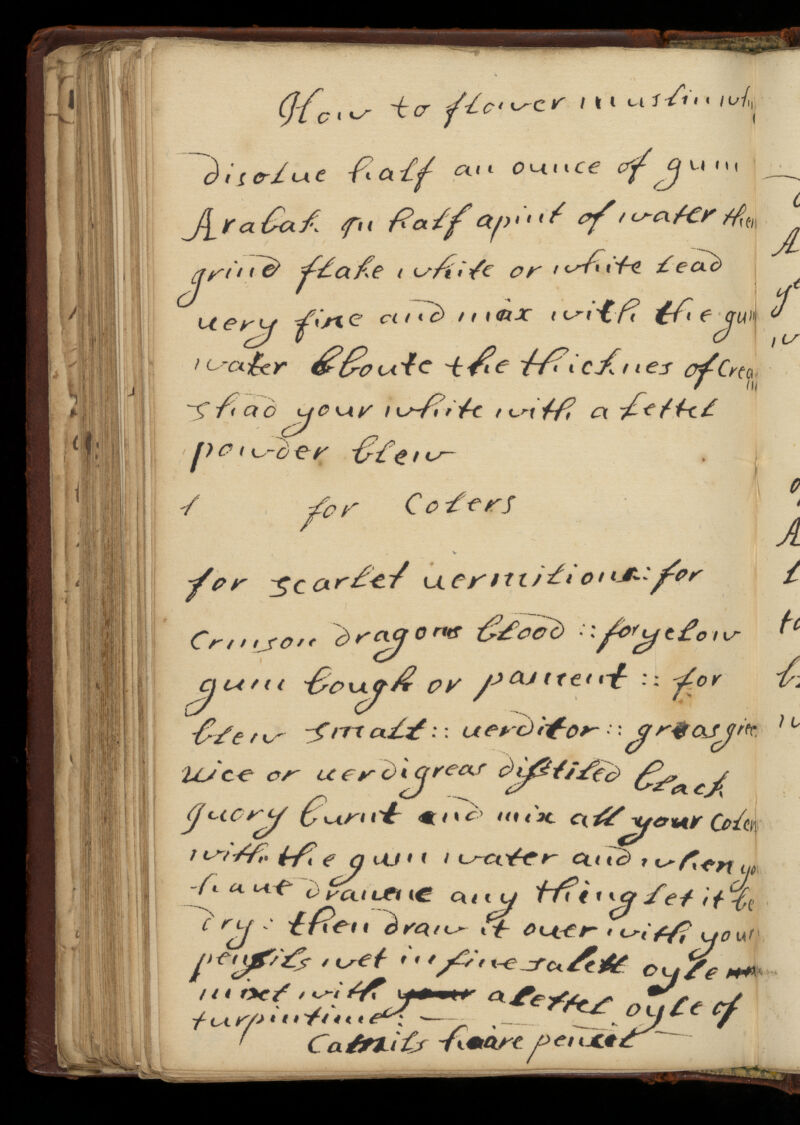 How to flower muslin whi
disolue half an ounce of gum
Arabak in half apint of water then
grind flake white or white lead
uery fine and mix with the gum
water bboute the thicknes of Cream
shad your white with a lettel
powder blew
1 for Colers
for scarlet uermilion :: for
Crmson dragons blood :: for yelow
gum bough or pament :: for
blew smalt :: uerditor :: greas gree
uice or uerdigreas distiled black
iuory burnt and mix all your Colers
with the gum water and when yo
haue drauene any thing let it be
dry : then draw it ouer with your
pensils wet in fine salett oyle
mixt with a lettel oyle of
turpintine :
Camils haire pencil